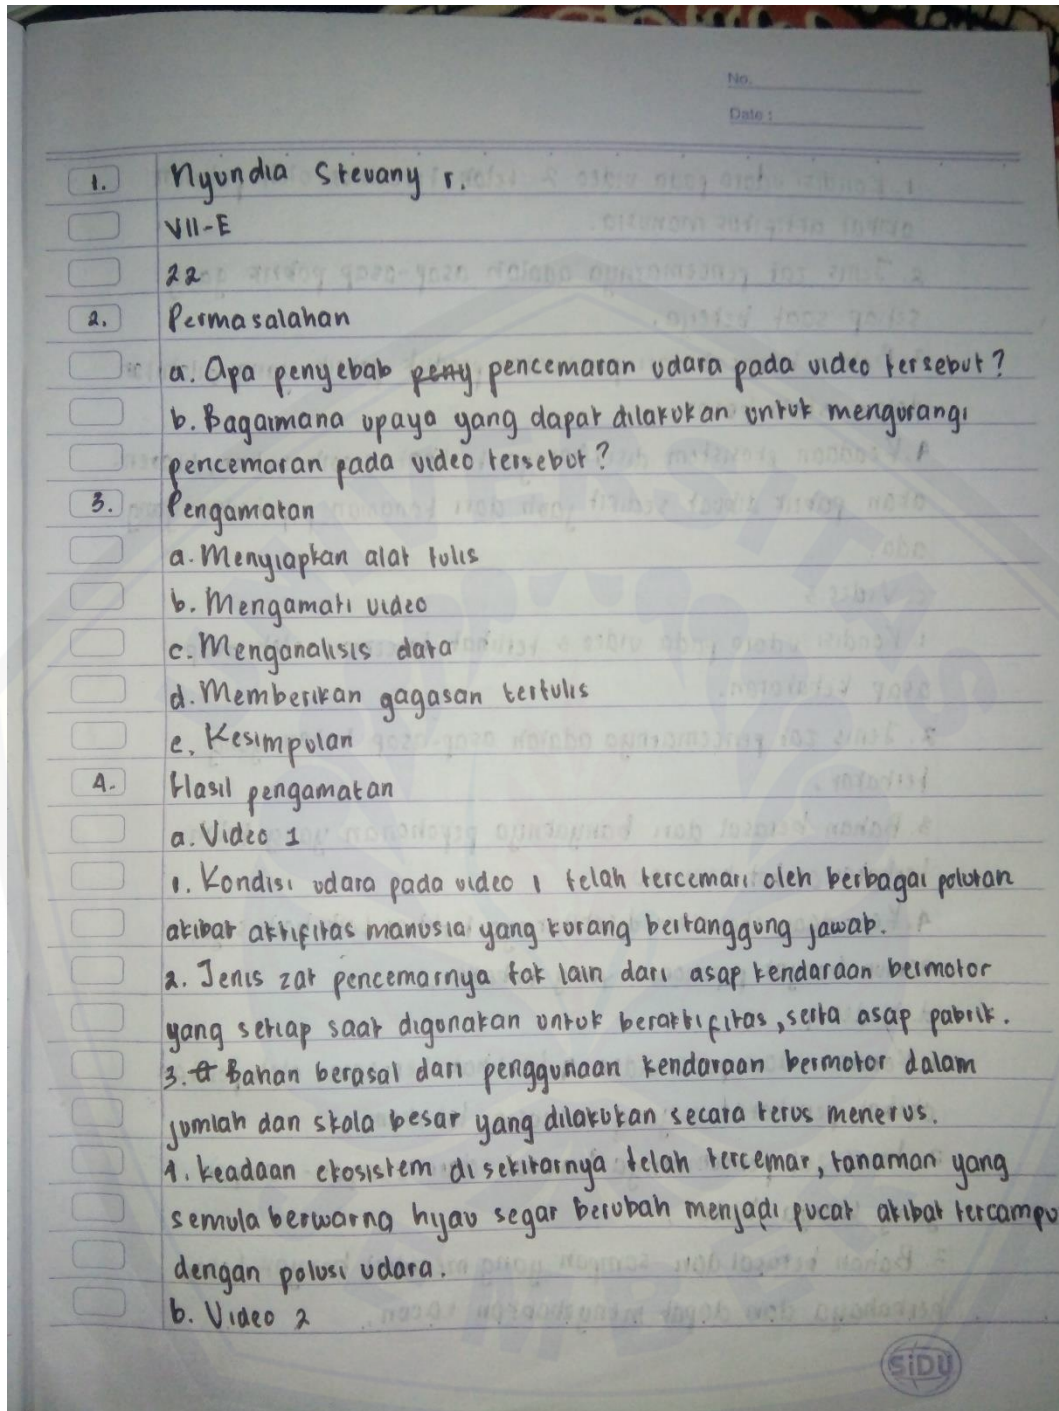 No.
Date :
1. Nyundia Stevany r.
VII-E
22
2. Permasalahan
a. Apa penyebab peny pencemaran udara pada video tersebut?
b. Bagaimana upaya yang dapat dilakukan untuk mengurangi
pencemaran pada video tersebut?
3. Pengamatan
a. Menyiapkan alat tulis
b. Mengamati video
c. Menganalisis data
d. Memberikan gagasan tertulis
e. Kesimpulan
4. Hasil pengamatan
a. Video 1
1. Kondisi udara pada video 1 telah tercemari oleh berbagai polutan
akibat aktifitas manusia yang kurang bertanggung jawab.
2. Jenis zat pencemarnya tak lain dari asap kendaraan bermotor
yang setiap saat digunakan untuk beraktifitas, serta asap pabrik.
3. Bahan berasal dari penggunaan kendaraan bermotor dalam
jumlah dan skala besar yang dilakukan secara terus menerus.
4. keadaan ekosistem di sekitarnya telah tercemar, tanaman yang
semula berwarna hijau segar berubah menjadi pucat akibat tercampu
dengan polusi udara.
b. Video 2
SiDU